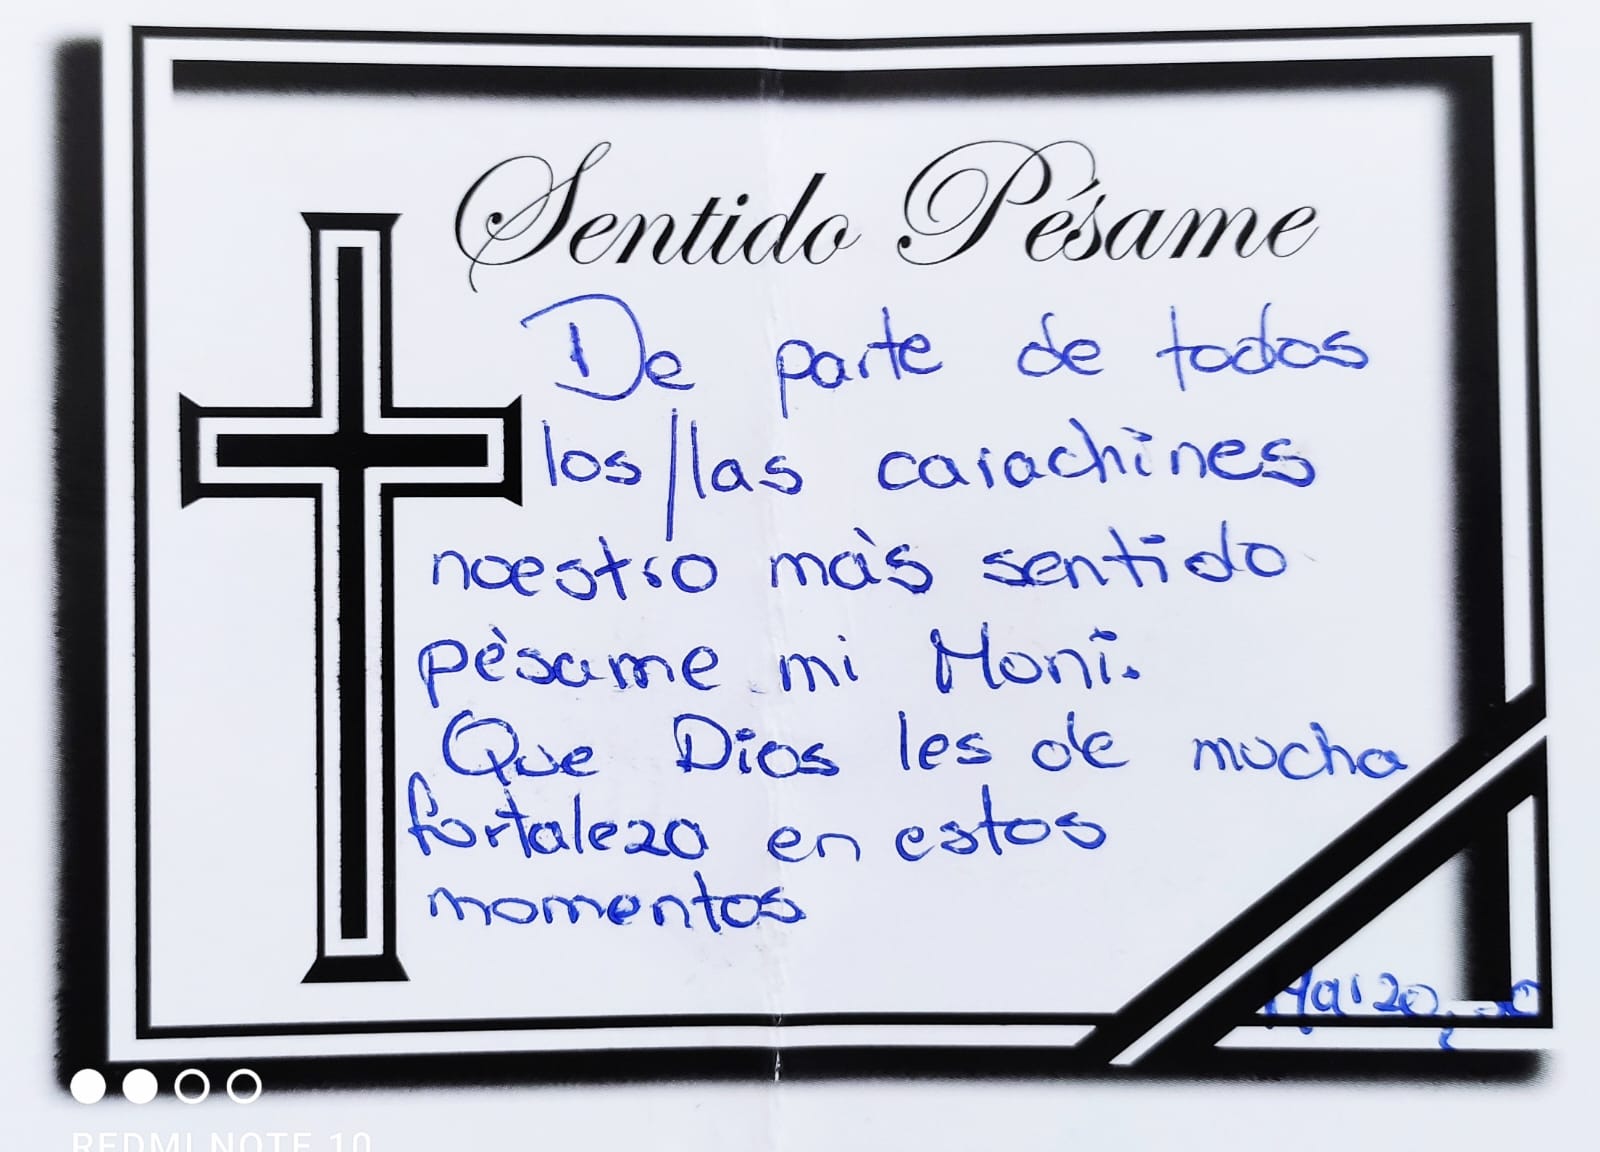 Sentido Pésame
De parte de todos
los/las carachines
nuestro más sentido
pèsame mi Moni.
Que Dios les de mucha
fortaleza en estos
momentos
REDMI NOTE 10